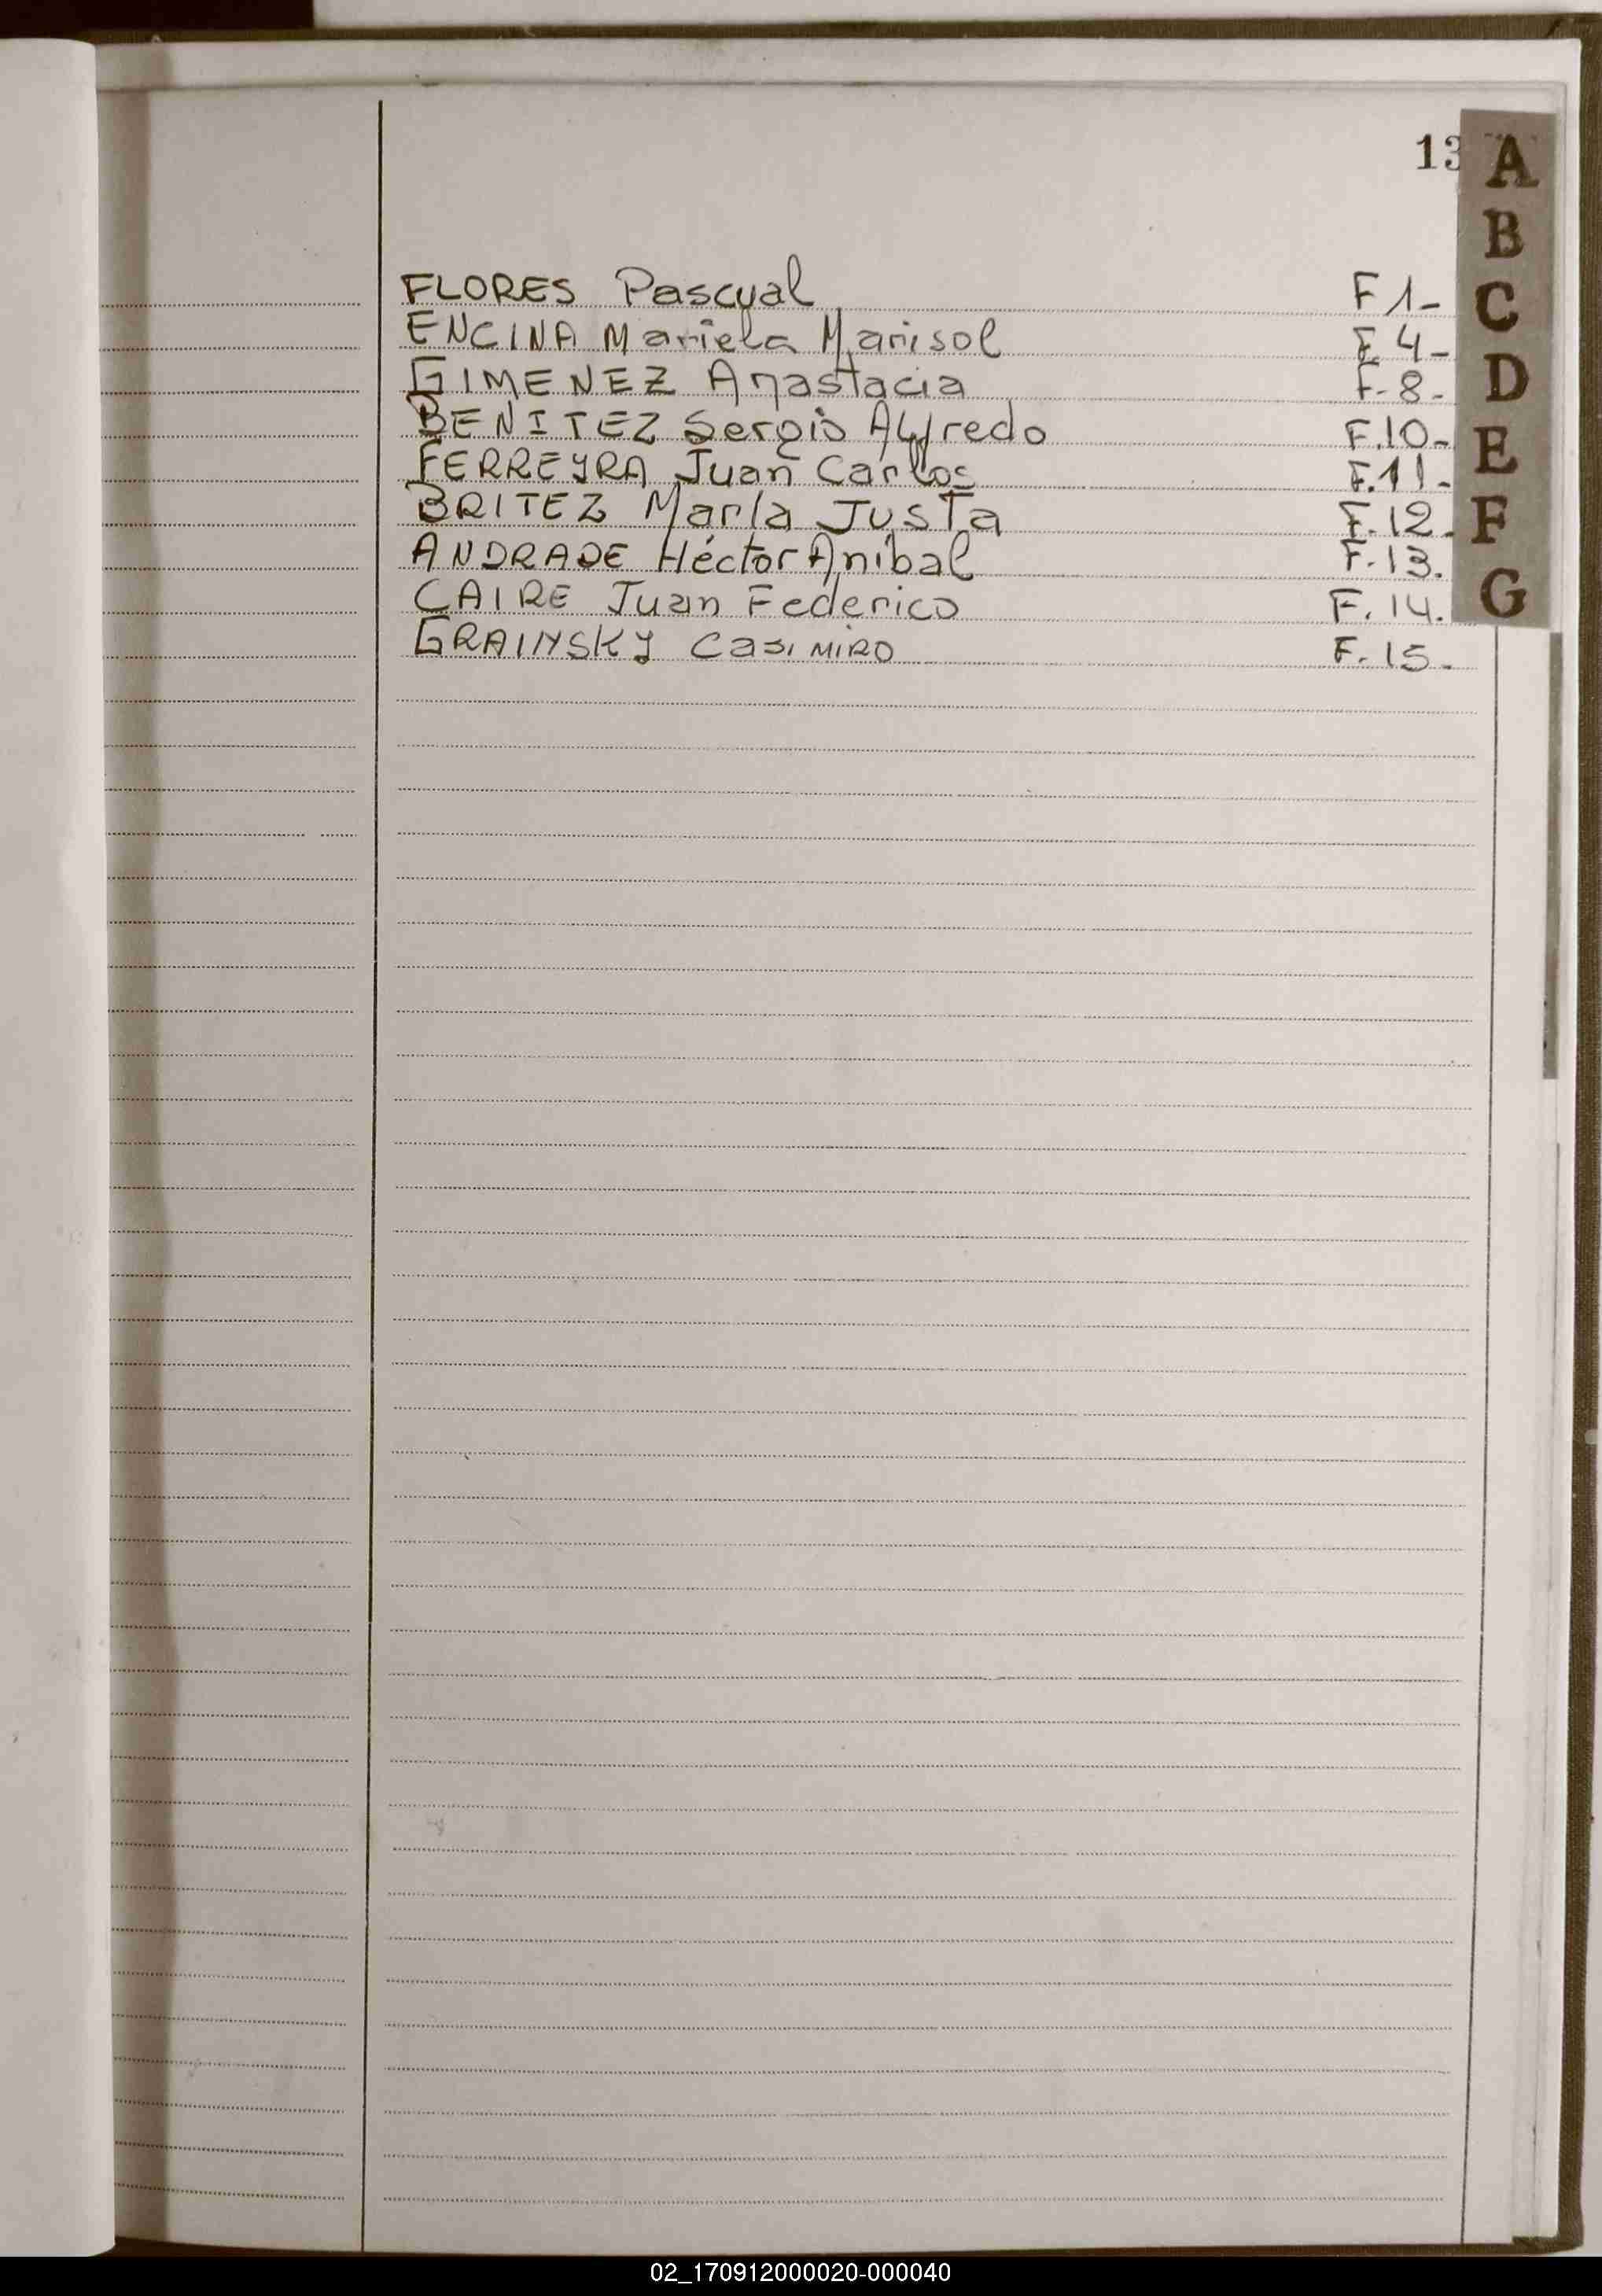 13
FLORES Pascual F 1-
ENCINA Mariela Marisol F. 4-
GIMENEZ Anastacia F- 8-
BENITEZ Sergio Alfredo F.10-
FERREYRA Juan Carlos F.11-
BRITEZ María Justa F.12.
ANDRADE Héctor Aníbal F.13.
CAIRE Juan Federico F. 14.
GRAINSKY Casimiro F. 15-
A
B
C
D
E
F
G
02_170912000020-000040